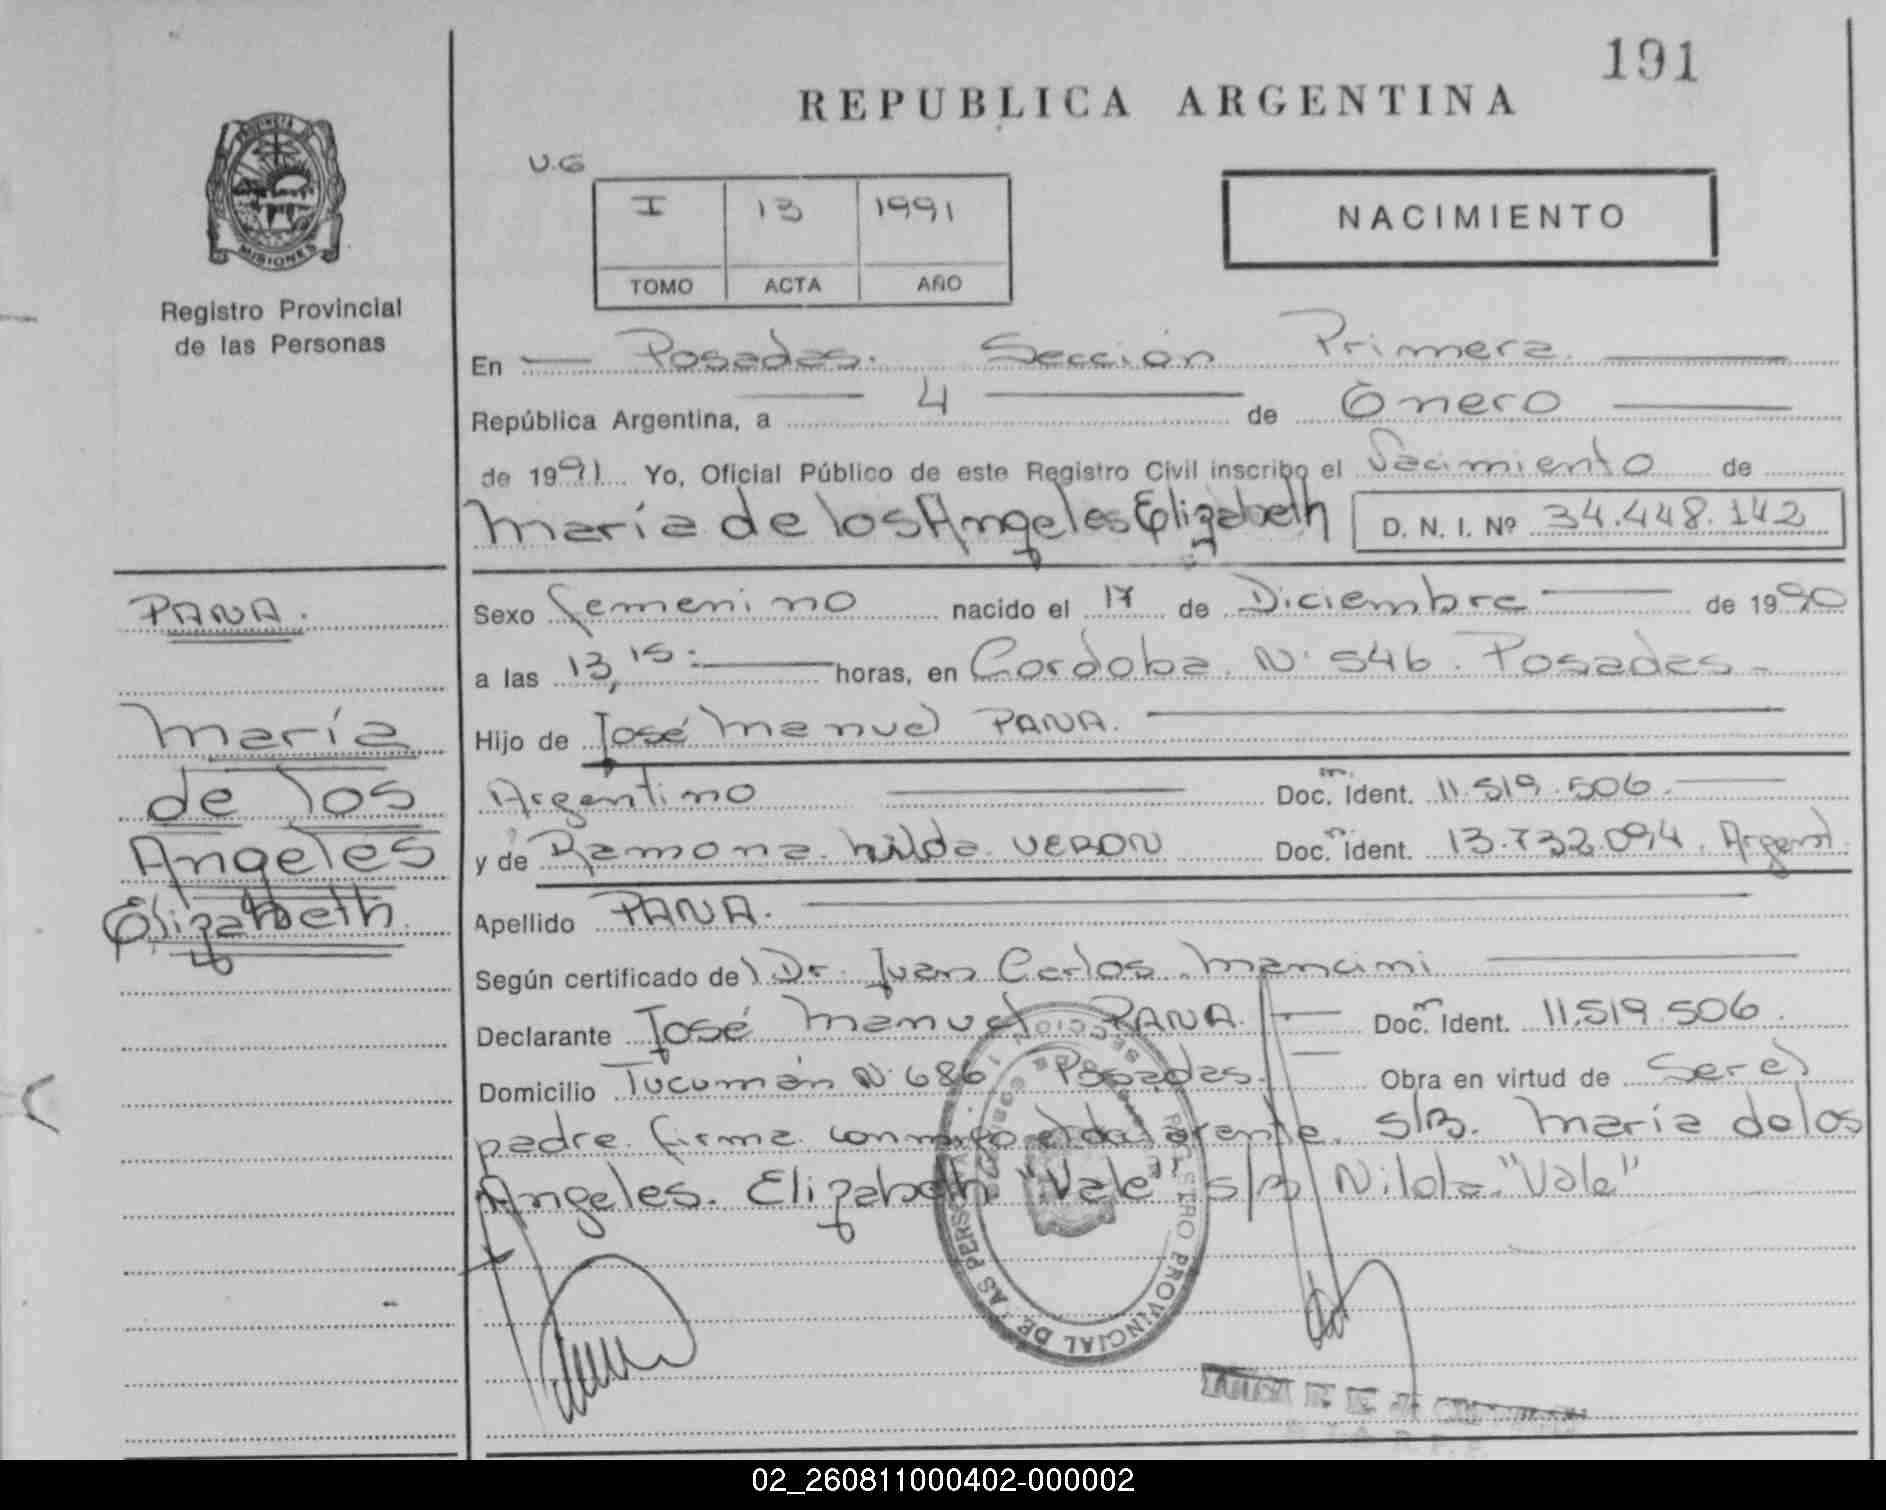 191
REPUBLICA ARGENTINA
PROVINCIA DE
MISIONES
Registro Provincial
de las Personas
U.G
I 13 1991
TOMO ACTA AÑO
NACIMIENTO
En Posadas. Sección Primera.
República Argentina, a 4 de Enero
de 1991 Yo, Oficial Público de este Registro Civil inscribo el Nacimiento de
María de los Angeles Elizabeth D. N. I. Nº 34.448.142
PANA.
María
de los
Angeles
Elizabeth.
Sexo femenino nacido el 17 de Diciembre de 1990
a las 13,15: horas, en Cordoba. Nº 546. Posadas-
Hijo de José Manuel PANA.
Argentino Doc. Ident. 11.519.506.
y de Ramona hilda VERON Doc. Ident. 13.732.094. Argent.
Apellido PANA.
Según certificado del Dr. Juan Carlos Mancini
Declarante José Manuel PANA. Doc. Ident. 11.519.506.
Domicilio Tucumán Nº 686. Posadas. Obra en virtud de Ser el
padre. firma conmigo el declarante. s/B. María de los
Angeles. Elizabeth "Vale" s/B Nilda. "Vale"
REGISTRO PROVINCIAL DE LAS PERSONAS
SECCION 1
02_260811000402-000002